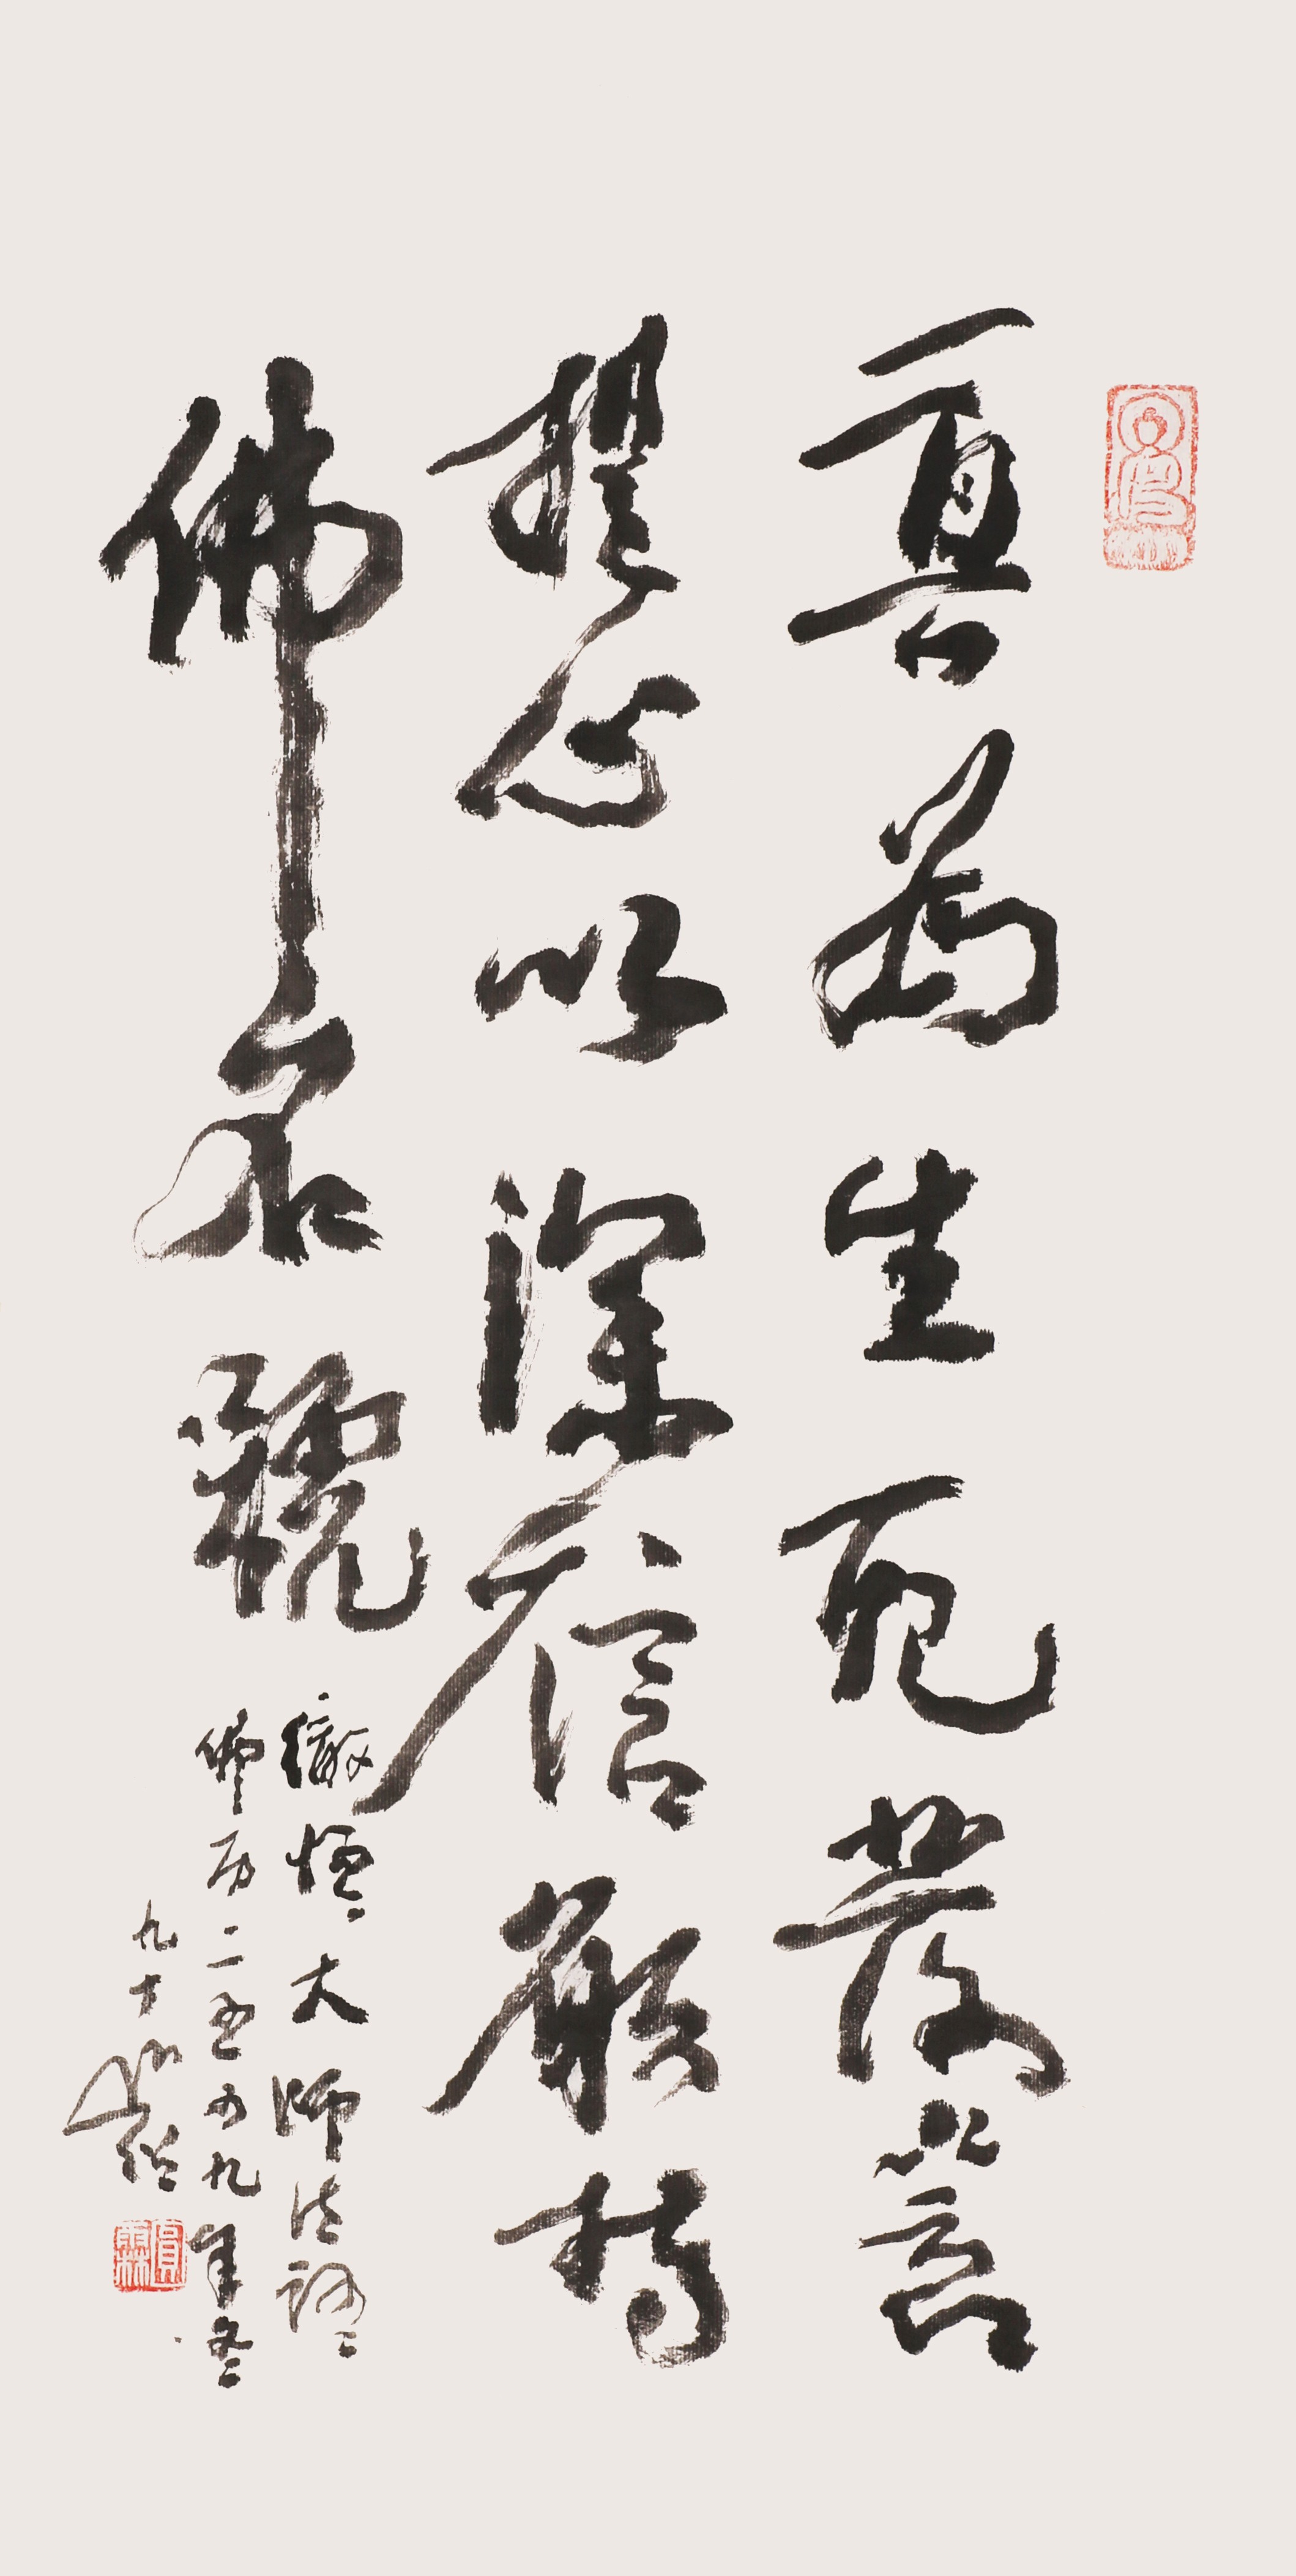 真為生死發菩
提心以深信願持
佛名號
徹悟大師法語
佛历二五四九年冬
九十
圓霖